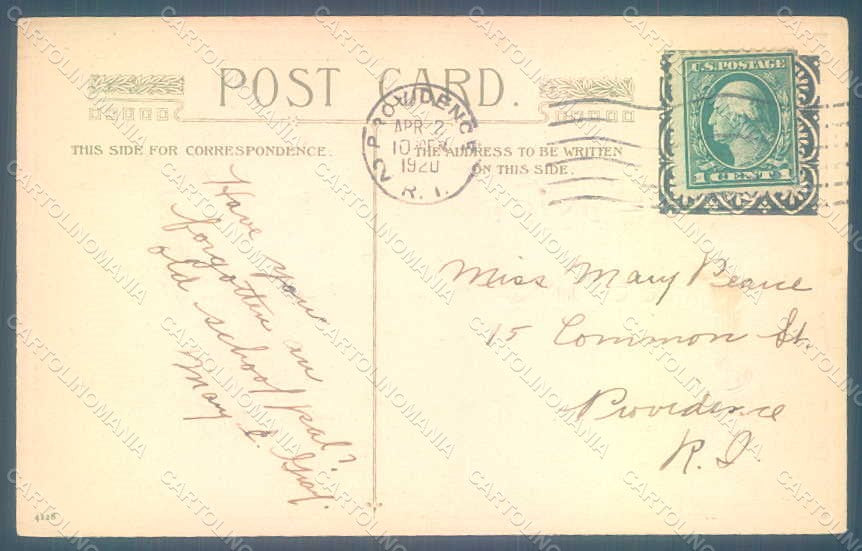 POST CARD.
THIS SIDE FOR CORRESPONDENCE.
THE ADDRESS TO BE WRITTEN
ON THIS SIDE.
PROVIDENCE
APR 2
10
1920
R. I.
2
U.S. POSTAGE
1 CENT 1
Have you
forgotten an
old school pal?
Mary E. Gray.
Miss Mary Pearce
15 Common St.
Providence
R. I.
4128
CARTOLINOMANIA